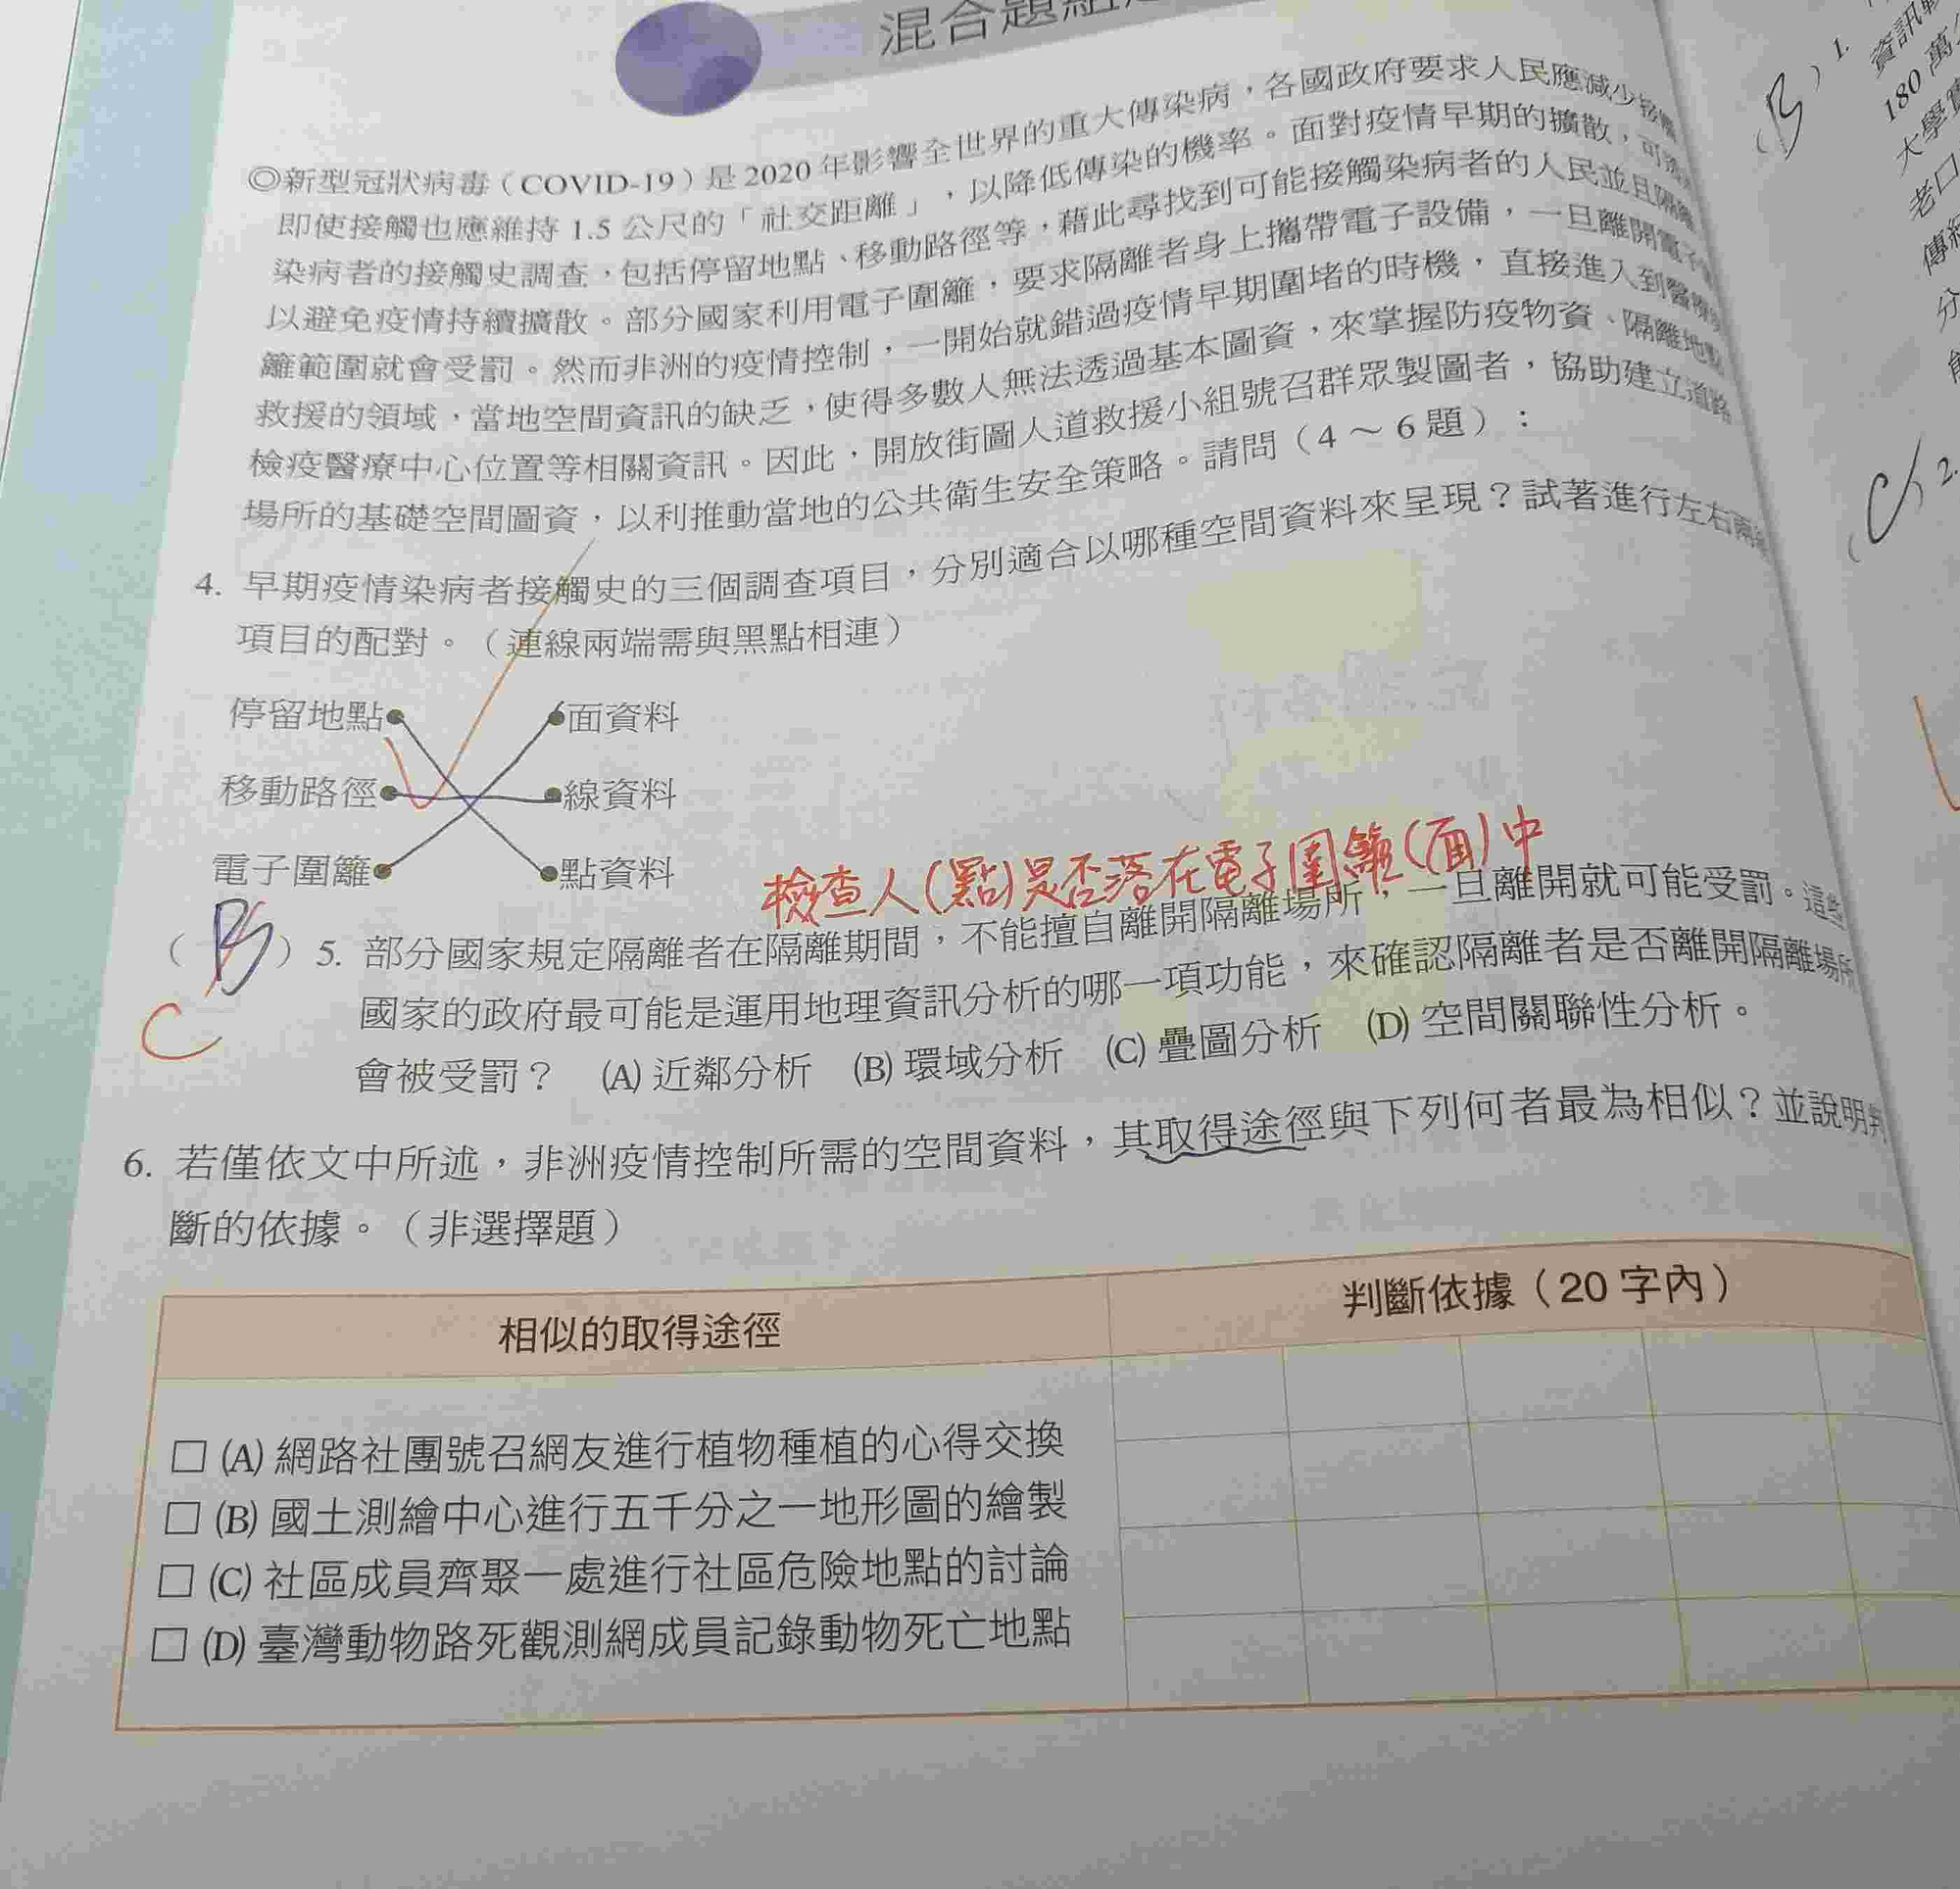 混合題組
◎新型冠狀病毒（COVID-19）是 2020 年影響全世界的重大傳染病，各國政府要求人民應減少接觸
即使接觸也應維持 1.5 公尺的「社交距離」，以降低傳染的機率。面對疫情早期的擴散，可
染病者的接觸史調查，包括停留地點、移動路徑等，藉此尋找到可能接觸染病者的人民並且隔離
以避免疫情持續擴散。部分國家利用電子圍籬，要求隔離者身上攜帶電子設備，一旦離開電子
籬範圍就會受罰。然而非洲的疫情控制，一開始就錯過疫情早期圍堵的時機，直接進入到醫療
救援的領域，當地空間資訊的缺乏，使得多數人無法透過基本圖資，來掌握防疫物資、隔離地點
檢疫醫療中心位置等相關資訊。因此，開放街圖人道救援小組號召群眾製圖者，協助建立道路
場所的基礎空間圖資，以利推動當地的公共衛生安全策略。請問（4～6題）：
4. 早期疫情染病者接觸史的三個調查項目，分別適合以哪種空間資料來呈現？試著進行左右兩
項目的配對。（連線兩端需與黑點相連）
停留地點 面資料
移動路徑 線資料
電子圍籬 點資料
檢查人(點)是否落在電子圍籬(面)中
（B）5. 部分國家規定隔離者在隔離期間，不能擅自離開隔離場所，一旦離開就可能受罰。這些
C
國家的政府最可能是運用地理資訊分析的哪一項功能，來確認隔離者是否離開隔離場所
會被受罰？ (A) 近鄰分析 (B) 環域分析 (C) 疊圖分析 (D) 空間關聯性分析。
6. 若僅依文中所述，非洲疫情控制所需的空間資料，其取得途徑與下列何者最為相似？並說明判
斷的依據。（非選擇題）
相似的取得途徑 判斷依據（20 字內）
□ (A) 網路社團號召網友進行植物種植的心得交換
□ (B) 國土測繪中心進行五千分之一地形圖的繪製
□ (C) 社區成員齊聚一處進行社區危險地點的討論
□ (D) 臺灣動物路死觀測網成員記錄動物死亡地點
（B）1.
資訊
180 萬
大學
老口
傳
分
（C）2.